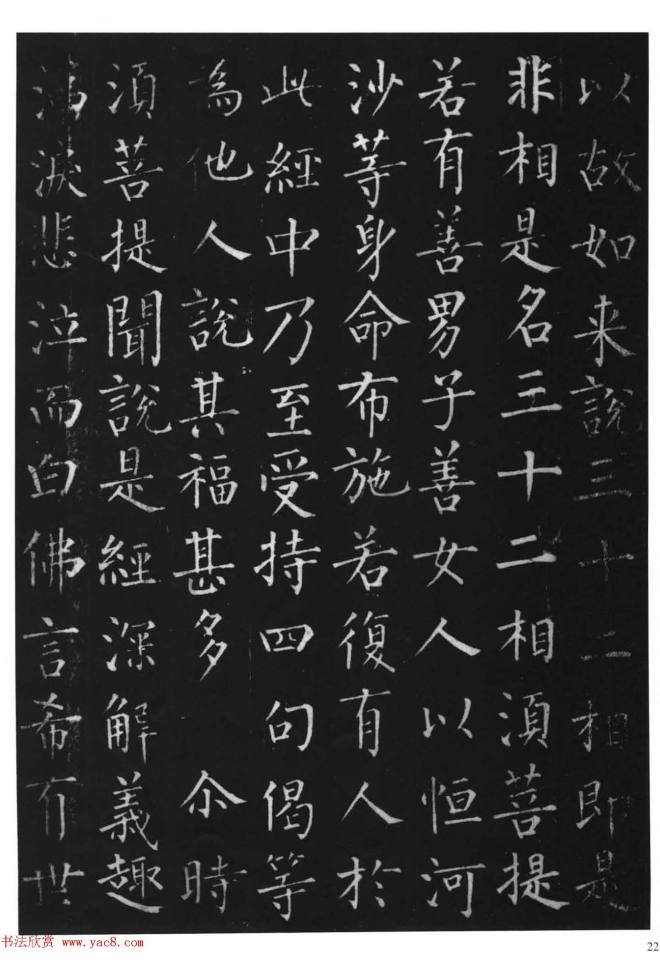 以故如来說三十二相即是
非相是名三十二相湏菩提
若有善男子善女人以恒河
沙等身命布施若復有人於
此經中乃至受持四句偈等
為他人說其福甚多 尒時
湏菩提聞說是經深解義趣
涕淚悲泣而白佛言希有世
书法欣赏 www.yac8.com
22